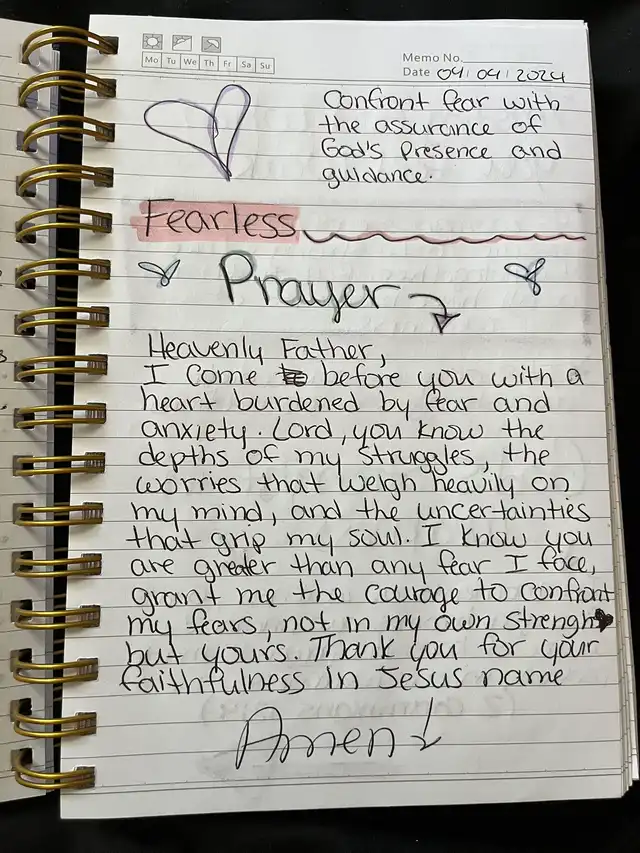 Mo Tu We Th Fr Sa Su
Memo No.
Date 04/04/2024
Confront fear with
the assurance of
God's Presence and
guidance.
Fearless
Prayer
Heavenly Father,
I come before you with a
heart burdened by fear and
anxiety. Lord, you know the
depths of my struggles, the
worries that weigh heavily on
my mind, and the uncertainties
that grip my soul. I know you
are greater than any fear I face,
grant me the courage to confront
my fears, not in my own strengh
but yours. Thank you for your
faithfulness in Jesus name
Amen